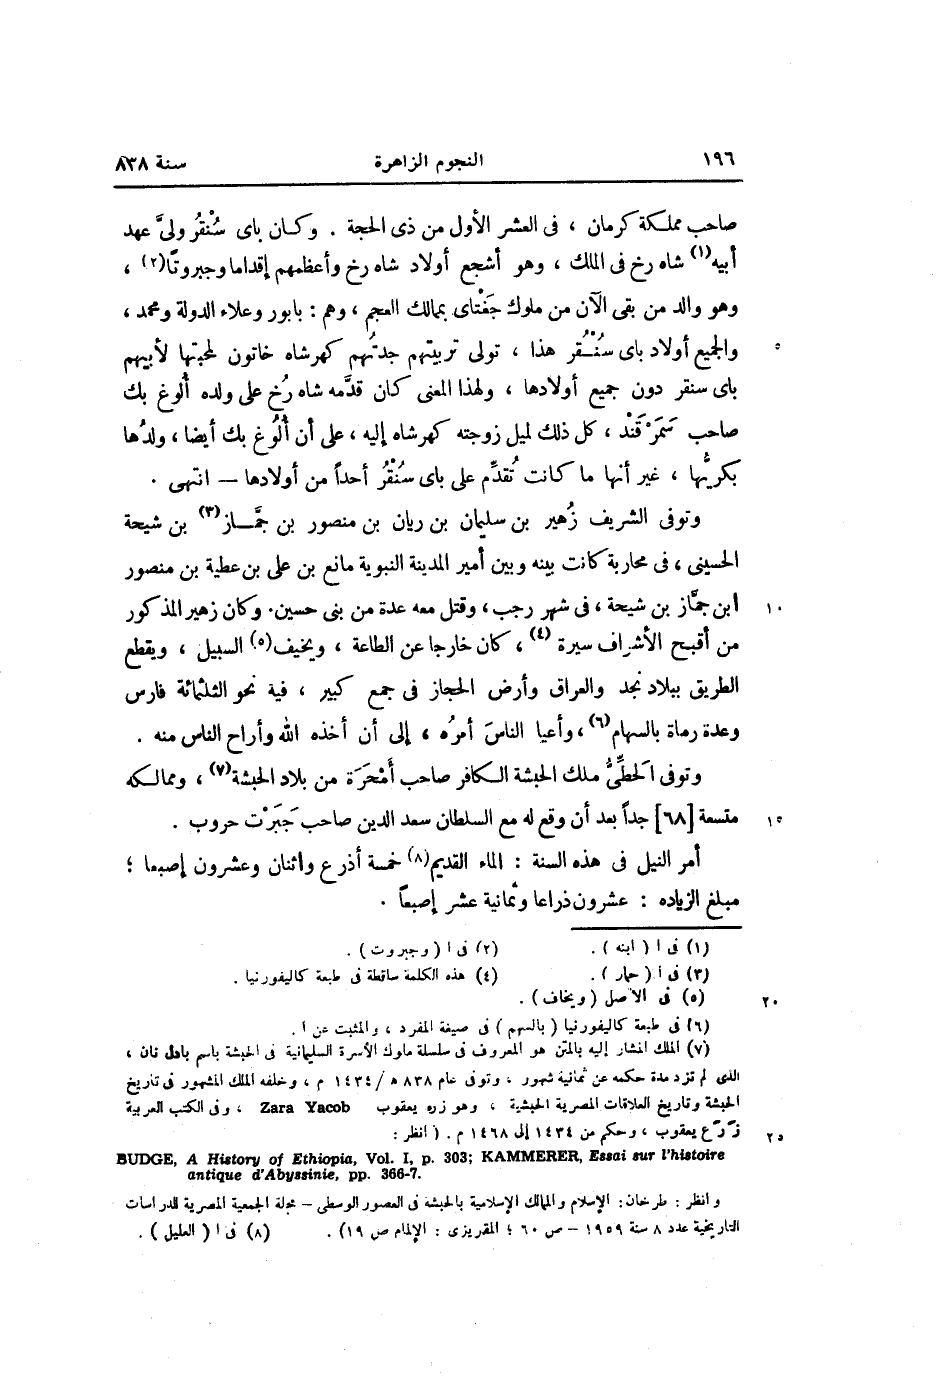 ١٩٦ النجوم الزاهرة سنة ٨٣٨
صاحب مملكة كرمان ، فى العشر الأول من ذى الحجة . وكان باى سُنْقُر ولىَّ عهد
أبيه(١) شاه رخ فى الملك ، وهو أشجع أولاد شاه رخ وأعظمهم إقداما وجبروتًا(٢) ،
وهو والد من بقى الآن من ملوك جَغْتاى بممالك العجم ، وهم : بابور وعلاء الدولة ومحمد ،
والجميع أولاد باى سُنْقُر هذا ، تولى تربيتهم جدتُهم كهرشاه خاتون لمحبتها لأبيهم ٥
باى سنقر دون جميع أولادها ، ولهذا المعنى كان قدَّمه شاه رُخ على ولده أُلوغ بك
صاحب سَمَرْقَنْد ، كل ذلك لميل زوجته كهرشاه إليه ، على أن أُلُوغ بك أيضا ، ولدُها
بكريُّها ، غير أنها ما كانت تُقدِّم على باى سُنْقُر أحداً من أولادها — انتهى .
وتوفى الشريف زُهير بن سليمان بن ريان بن منصور بن جَّمـاز(٣) بن شيحة
الحسينى ، فى محاربة كانت بينه وبين أمير المدينة النبوية مانع بن على بن عطية بن منصور
ابن جمَّاز بن شيحة ، فى شهر رجب ، وقتل معه عدة من بنى حسين. وكان زهير المذكور ١٠
من أقبح الأشراف سيرة (٤) ، كان خارجا عن الطاعة ، ويخيف(٥) السبيل ، ويقطع
الطريق ببلاد نجد والعراق وأرض الحجاز فى جمع كبير ، فيه نحو الثلثمائة فارس
وعدة رماة بالسهام(٦) ، وأعيا الناسَ أمرُه ، إلى أن أخذه الله وأراح الناس منه .
وتوفى اَلحطِّىُّ ملك الحبشة الكافر صاحب أَمْحَرَة من بلاد الحبشة(٧) ، وممالكه
متسعة [٦٨] جداً بعد أن وقع له مع السلطان سعد الدين صاحب جَبَرْت حروب . ١٥
أمر النيل فى هذه السنة : الماء القديم(٨) خمسة أذرع واثنان وعشرون إصبعا ؛
مبلغ الزياده : عشرون ذراعا وثمانية عشر إصبعاً .
(١) فى ا ( ابنه ) . (٢) فى ا ( وجبروت ) .
(٣) فى ا ( حمار ) . (٤) هذه الكلمة ساقطة فى طبعة كاليفورنيا .
(٥) فى الأصل ( ويخاف ) . ٢٠
(٦) فى طبعة كاليفورنيا ( بالسهم ) فى صيغة المفرد ، والمثبت عن ا .
(٧) الملك المشار إليه بالمتن هو المعروف فى سلسلة ملوك الأسرة السليمانية فى الحبشة باسم بادل نان ،
الذى لم تزد مدة حكمه عن ثمانية شهور ، وتوفى عام ٨٣٨ ه / ١٤٣٤ م ، وخلفه الملك المشهور فى تاريخ
الحبشة وتاريخ العلاقات المصرية الحبشية ، وهو زره يعقوب Zara Yacob ، وفى الكتب العربية
زَرْع يعقوب ، وحكم من ١٤٣٤ إلى ١٤٦٨ م . ( انظر : ٢٥
BUDGE, A History of Ethiopia, Vol. I, p. 303; KAMMERER, Essai sur l'histoire
antique d'Abyssinie, pp. 366-7.
وانظر : طرخان : الإسلام والممالك الإسلامية بالحبشة فى العصور الوسطى – مجلة الجمعية المصرية للدراسات
التاريخية عدد ٨ سنة ١٩٥٩ – ص ٦٠ ؛ المقريزى : الإلمام ص ١٩) . (٨) فى ا ( العليل ) .